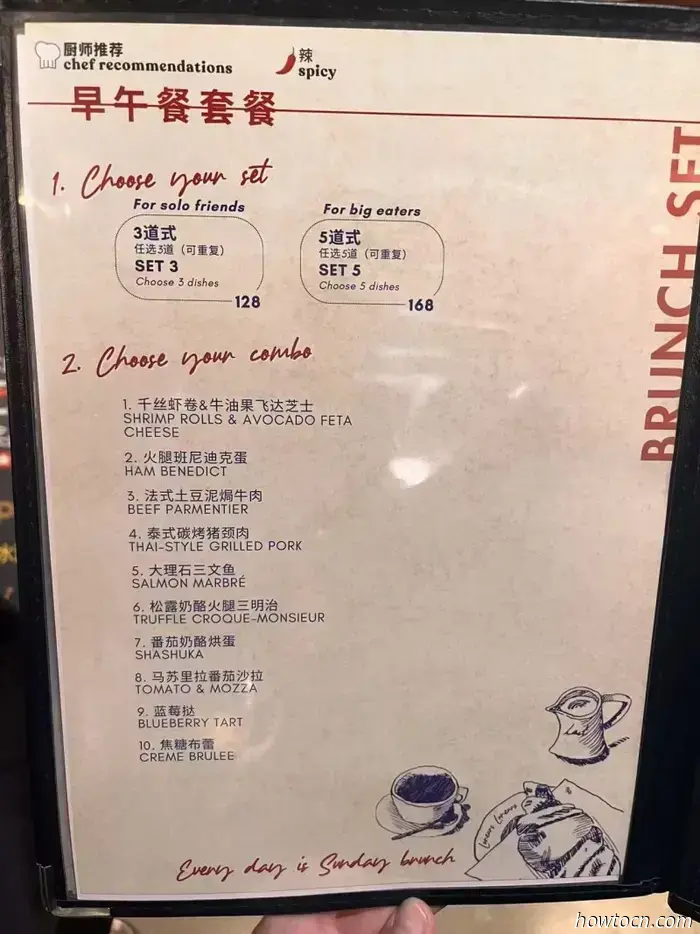 厨师推荐
chef recommendations
辣
spicy
早午餐套餐
BRUNCH SET
1. Choose your set
For solo friends
3道式
任选3道（可重复）
SET 3
Choose 3 dishes
128
For big eaters
5道式
任选5道（可重复）
SET 5
Choose 5 dishes
168
2. Choose your combo
1. 千丝虾卷&牛油果飞达芝士
SHRIMP ROLLS & AVOCADO FETA
CHEESE
2. 火腿班尼迪克蛋
HAM BENEDICT
3. 法式土豆泥焗牛肉
BEEF PARMENTIER
4. 泰式碳烤猪颈肉
THAI-STYLE GRILLED PORK
5. 大理石三文鱼
SALMON MARBRÉ
6. 松露奶酪火腿三明治
TRUFFLE CROQUE-MONSIEUR
7. 番茄奶酪烘蛋
SHASHUKA
8. 马苏里拉番茄沙拉
TOMATO & MOZZA
9. 蓝莓挞
BLUEBERRY TART
10. 焦糖布蕾
CREME BRULEE
Every day is Sunday brunch
howtocn.com